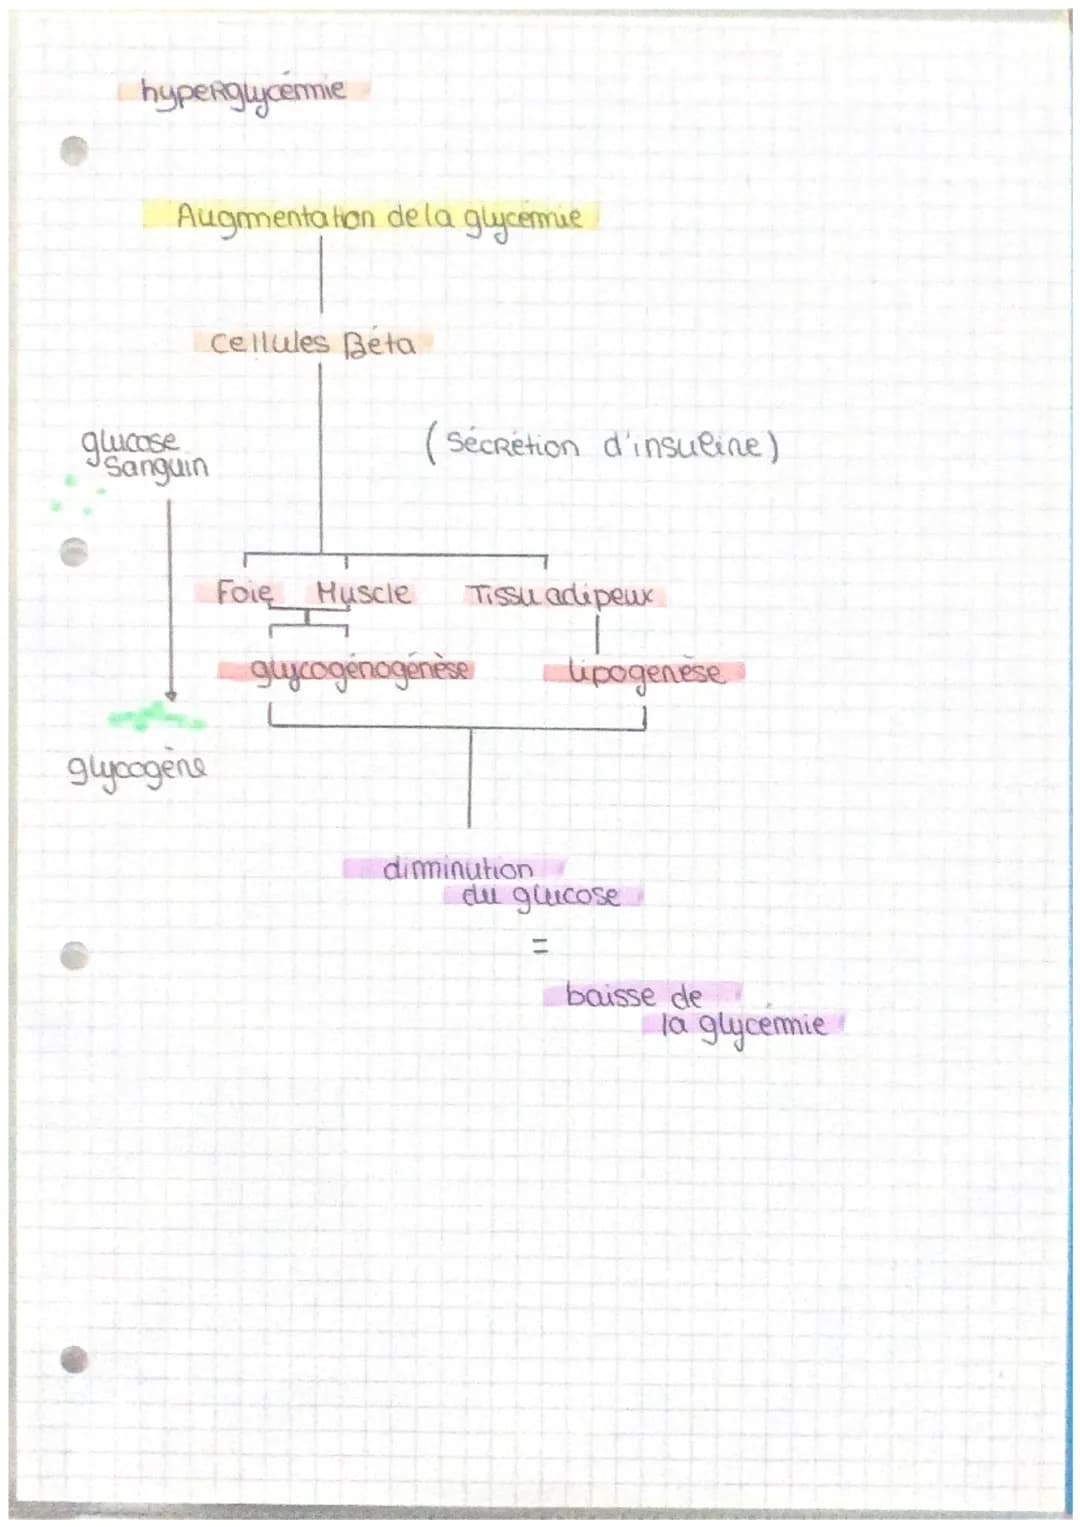 hyperglycémie
Augmentation de la glycémie
Cellules Béta
glucose
sanguin
(sécrétion d'insuline)
Foie Muscle Tissu adipeux
glycogénogénèse lipogenèse
glycogène
diminution
du glucose
=
baisse de
la glycémie